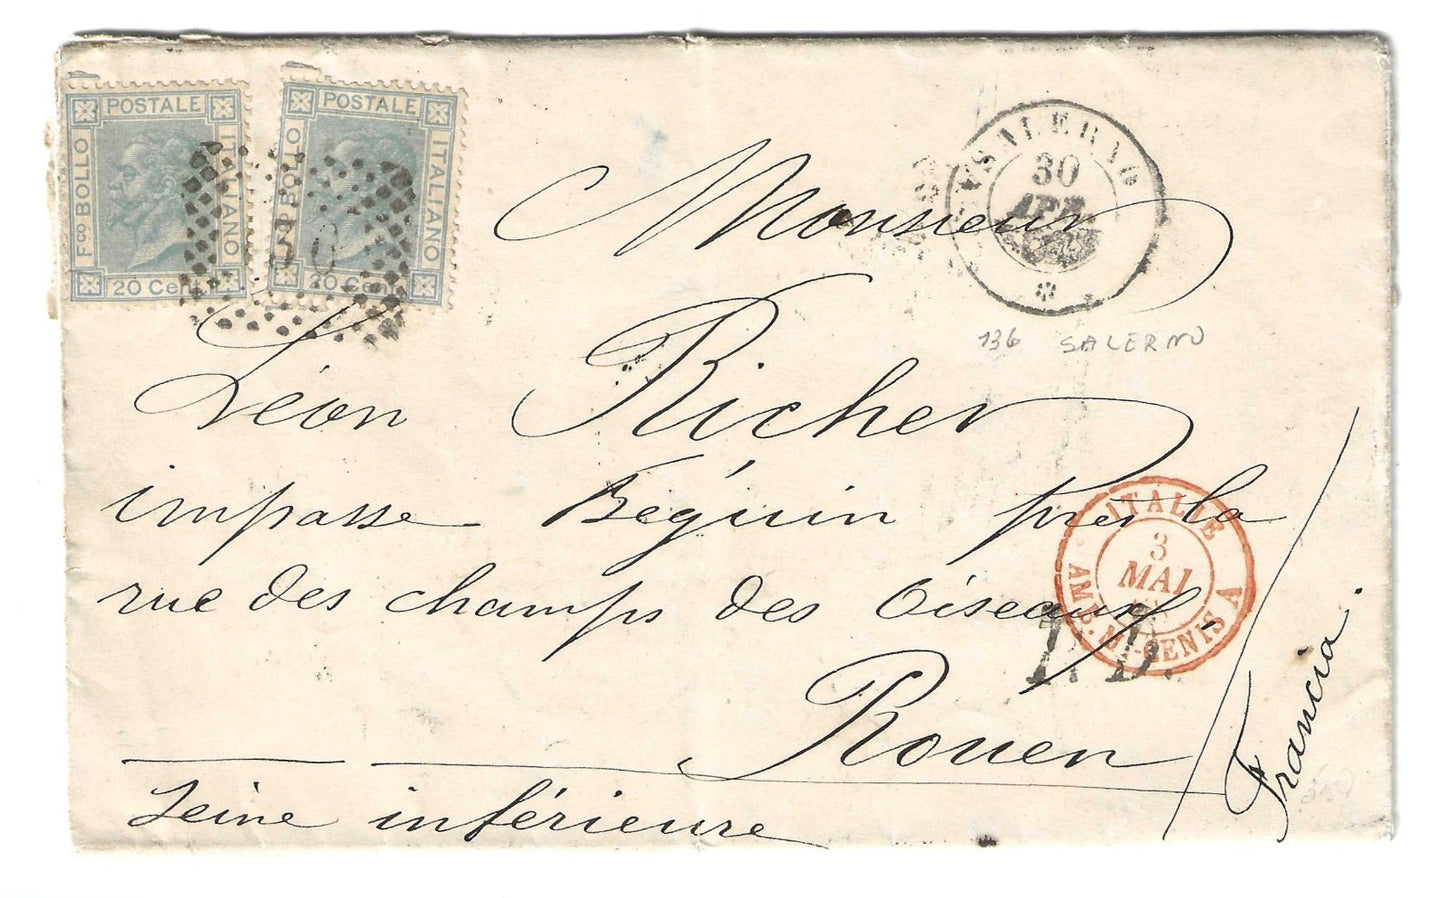 POSTALE
Fco BOLLO
ITALIANO
20 Cent
POSTALE
BOLLO
ITALIANO
20 Cent
SALERNO
30
APR.
136 SALERNO
Monsieur
Léon Richer
impasse Béguin près la
rue des champs des Oiseaux
Rouen
Seine inférieure
Francia
ITALIE
3
MAI
AMB. Mt-CENIS A
P.D.